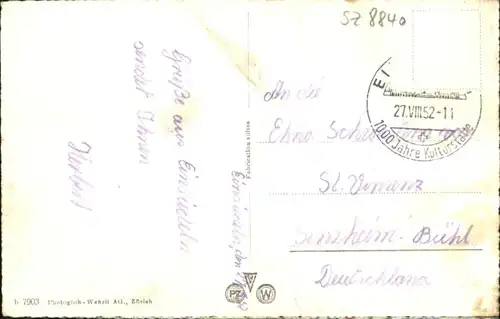 SZ 8840
Grüße aus Einsiedeln
sendet Ihnen
Herbert
Einsiedeln, den
Fabrication suisse
An die
St. Vinzenz
Sinzheim-Bühl
Deutschland
27.VIII.52-11
1000 Jahre Kulturstätte
b 7903 Photoglob-Wehrli AG., Zürich
PZ W